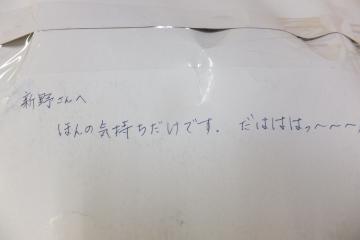 新野さんへ
ほんの気持ちだけです。 だはははっ〜〜〜。